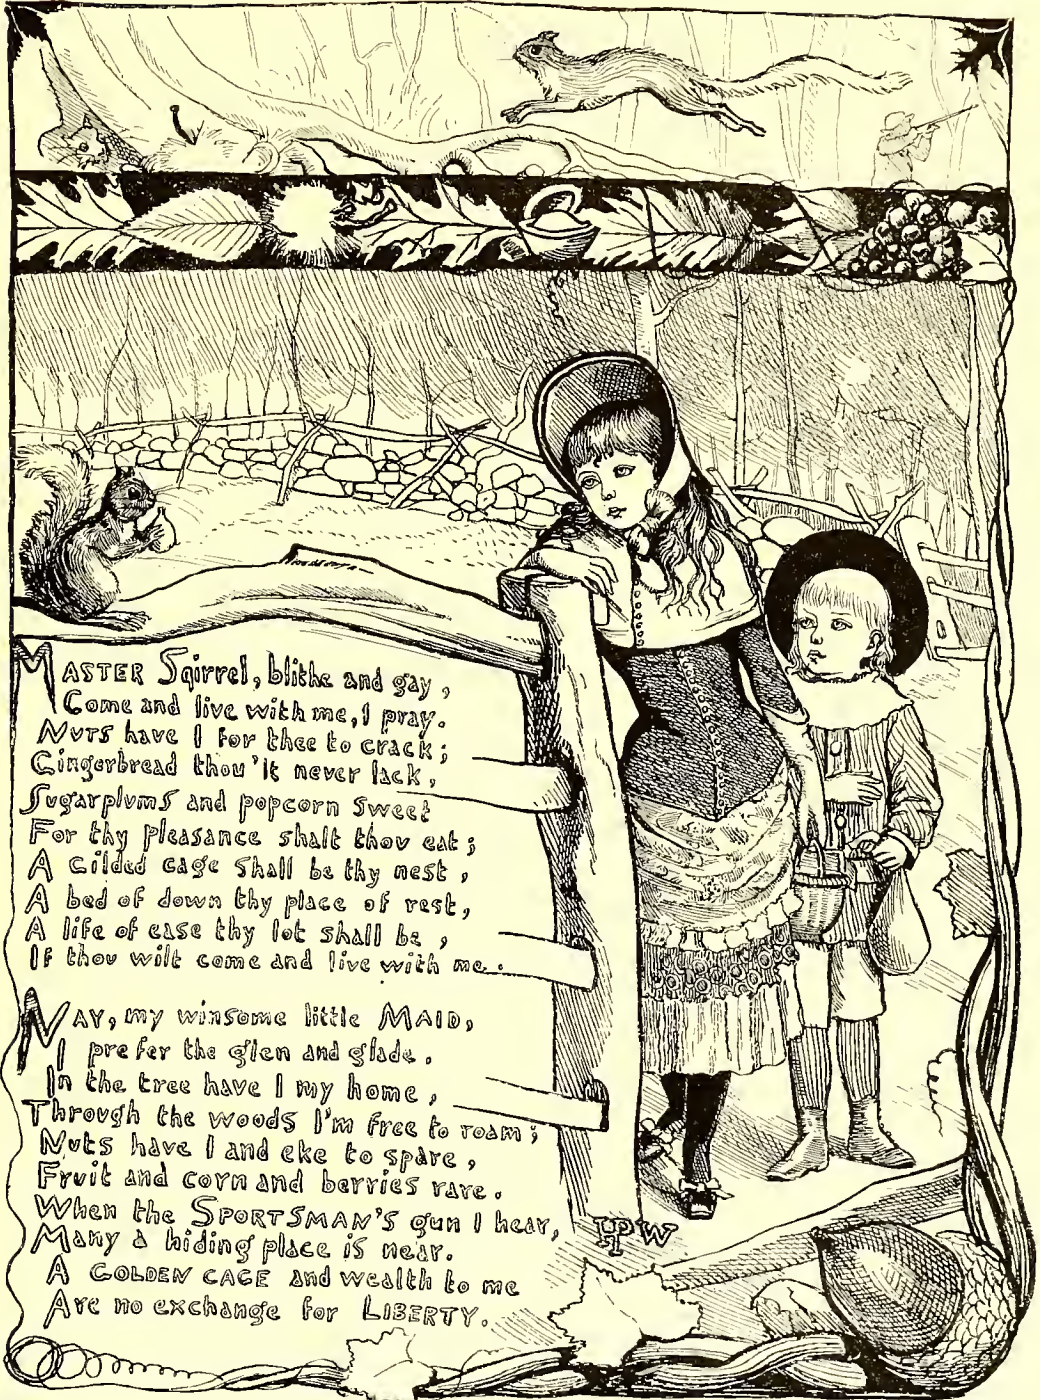 MASTER Sqirrel, blithe and gay,
Come and live with me, I pray.
NUTS have I for thee to crack;
Gingerbread thou'lt never lack,
Sugarplums and popcorn sweet
For thy pleasance shalt thou eat;
A Gilded cage shall be thy nest,
A bed of down thy place of rest,
A life of ease thy lot shall be,
If thou wilt come and live with me.
NAY, my winsome little MAID,
I prefer the glen and glade.
In the tree have I my home,
Through the woods I'm free to roam;
Nuts have I and eke to spare,
Fruit and corn and berries rare.
When the SPORTSMAN'S gun I hear,
Many a hiding place is near.
A GOLDEN CAGE and wealth to me
Are no exchange for LIBERTY.
HPW